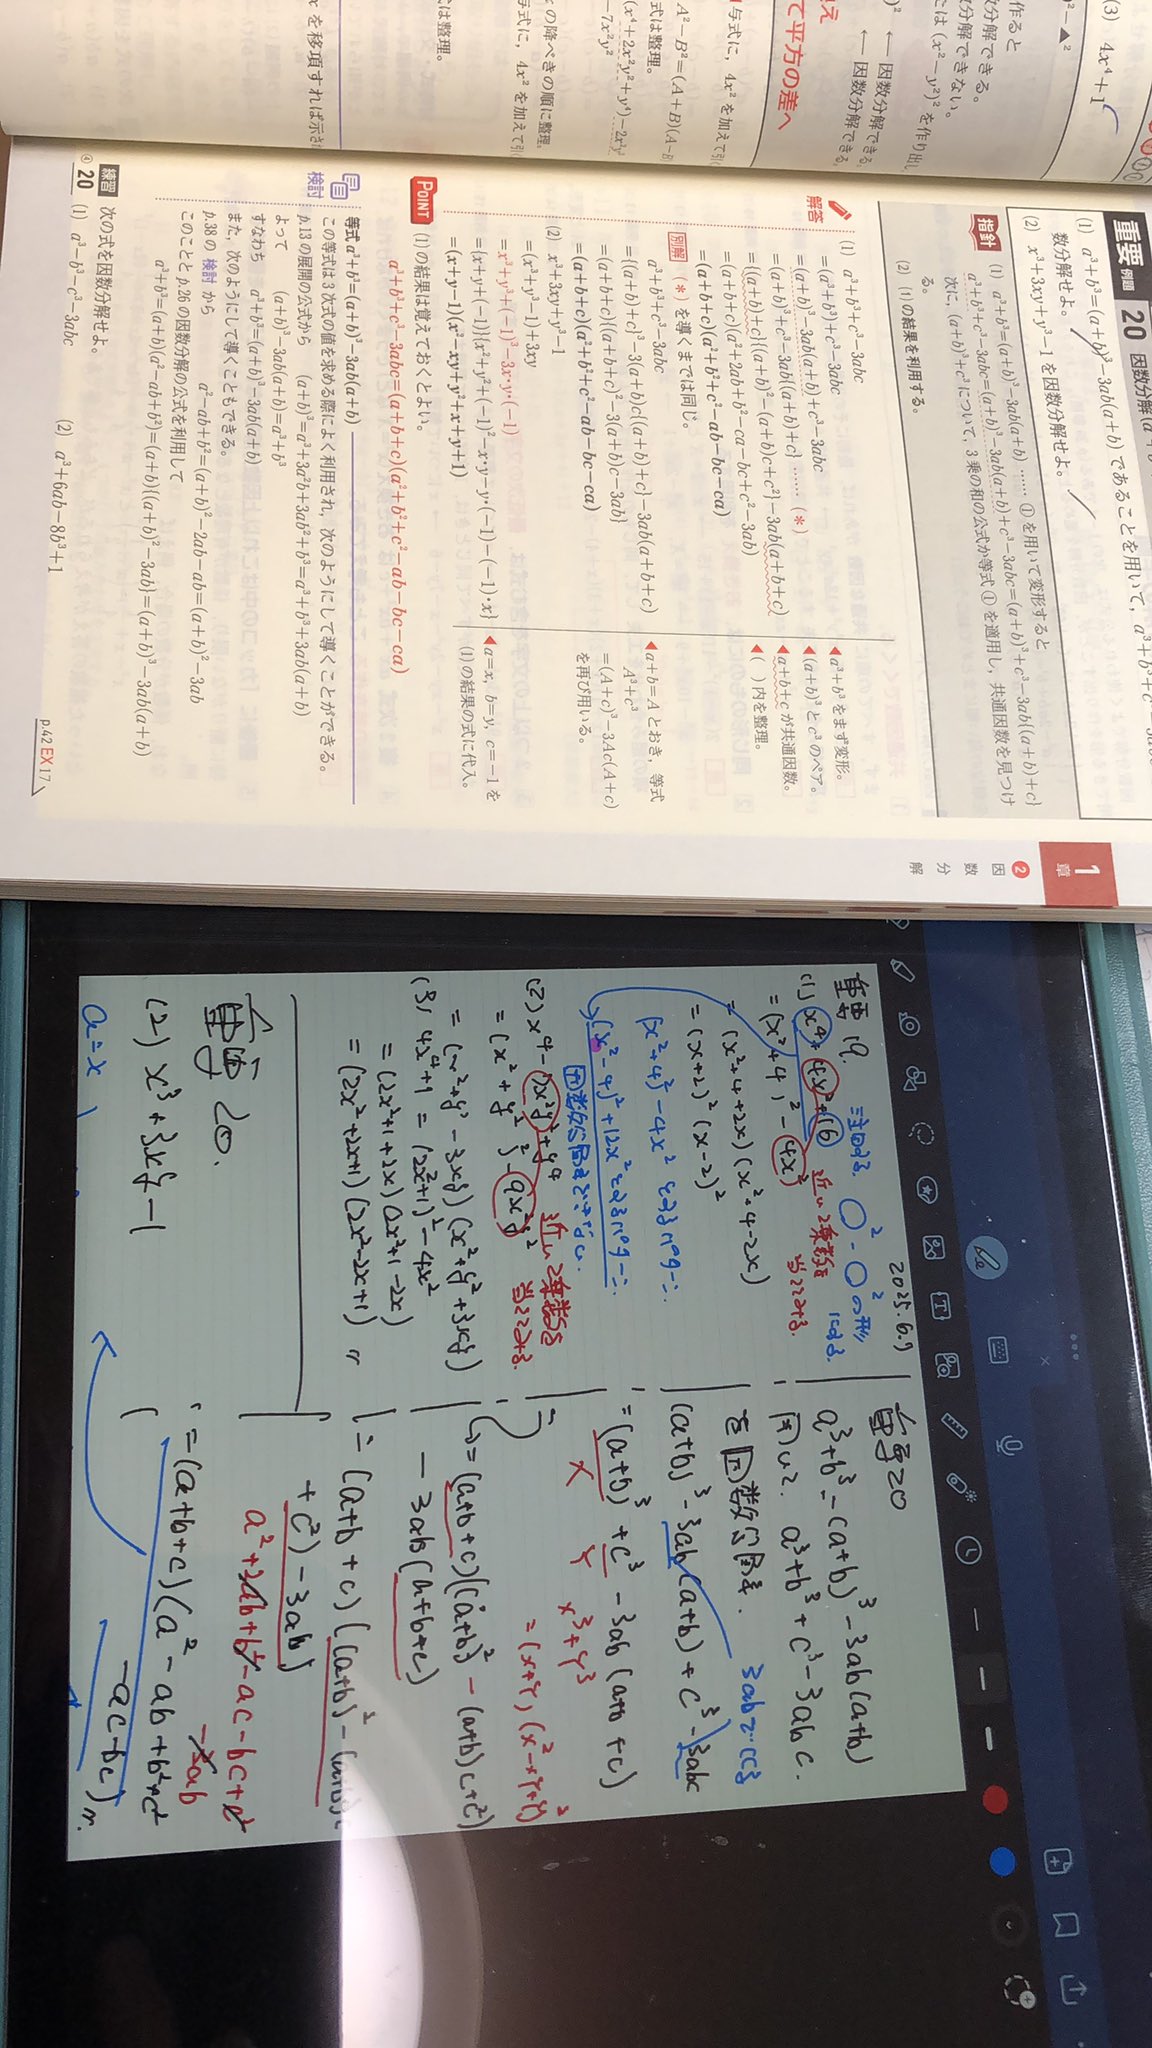 (3) 4x⁴+1
)²−▲²
作ると
数分解できる。
数分解できない。
には (x²−y²)² を作り出し
)² ← 因数分解できる
← 因数分解できる
て平方の差へ
与式に, 4x² を加えて引
A²−B²=(A+B)(A−B
式は整理。
(x⁴+2x²y²+y⁴)−2x²y²
−7x²y²
の降べきの順に整理。
与式に, 4x² を加えて引
式は整理。
x を移項すれば示さ
重要 例題 20 因数分解
(1) a³+b³=(a+b)³−3ab(a+b) であることを用いて, a³+b³+c³
数分解せよ。
(2) x³+3xy+y³−1 を因数分解せよ。
指針
(1) a³+b³=(a+b)³−3ab(a+b) …… ① を用いて変形すると
a³+b³+c³−3abc=(a+b)³−3ab(a+b)+c³−3abc=(a+b)³+c³−3ab{(a+b)+c}
次に, (a+b)³+c³について, 3 乗の和の公式か等式 ① を適用し, 共通因数を見つけ
る。
(2) (1) の結果を利用する。
解答
(1) a³+b³+c³−3abc
=(a³+b³)+c³−3abc
=(a+b)³−3ab(a+b)+c³−3abc
=(a+b)³+c³−3ab{(a+b)+c} …… (*)
={(a+b)+c}{(a+b)²−(a+b)c+c²}−3ab(a+b+c)
=(a+b+c)(a²+2ab+b²−ca−bc+c²−3ab)
=(a+b+c)(a²+b²+c²−ab−bc−ca)
◀a³+b³をまず変形。
◀(a+b)³とc³のペア。
◀a+b+cが共通因数。
◀( )内を整理。
別解 (*) を導くまでは同じ。
a³+b³+c³−3abc
={(a+b)+c}³−3(a+b)c{(a+b)+c}−3ab(a+b+c)
=(a+b+c){(a+b+c)²−3(a+b)c−3ab}
=(a+b+c)(a²+b²+c²−ab−bc−ca)
◀a+b=Aとおき, 等式
A³+c³
=(A+c)³−3Ac(A+c)
を再び用いる。
(2) x³+3xy+y³−1
=(x³+y³−1)+3xy
=x³+y³+(−1)³−3x・y・(−1)
={x+y+(−1)}{x²+y²+(−1)²−x・y−y・(−1)−(−1)・x}
=(x+y−1)(x²−xy+y²+x+y+1)
◀a=x, b=y, c=−1 を
(1) の結果の式に代入。
POINT
(1) の結果は覚えておくとよい。
a³+b³+c³−3abc=(a+b+c)(a²+b²+c²−ab−bc−ca)
検討
等式 a³+b³=(a+b)³−3ab(a+b)
この等式は 3 次式の値を求める際によく利用され, 次のようにして導くことができる。
p.13 の展開の公式から (a+b)³=a³+3a²b+3ab²+b³=a³+b³+3ab(a+b)
よって (a+b)³−3ab(a+b)=a³+b³
すなわち a³+b³=(a+b)³−3ab(a+b)
また, 次のようにして導くこともできる。
p.38 の 検討 から a²−ab+b²=(a+b)²−2ab−ab=(a+b)²−3ab
このことと p.26 の因数分解の公式を利用して
a³+b³=(a+b)(a²−ab+b²)=(a+b){(a+b)²−3ab}=(a+b)³−3ab(a+b)
練習 次の式を因数分解せよ。
④20 (1) a³−b³−c³−3abc
(2) a³+6ab−8b³+1
p.42 EX 17
1章
2 因数分解
2025.6.9
重要 19.
○²−○²の形
にする.
(1) x⁴+4x²+16
近い2乗数を
当てはめる.
=(x²+4)²−4x²
=(x²+4+2x)(x²+4−2x)
=(x+2)²(x−2)²
(x²+4)²−4x²
(x²−4)²+12x²
因数分解
(2) x⁴−7x²y²+y⁴
近い2乗数を
当てはめる.
=(x²+y²)²−9x²y²
=(x²+y²−3xy)(x²+y²+3xy)
(3) 4x⁴+1=(2x²+1)²−4x²
=(2x²+1+2x)(2x²+1−2x)
=(2x²+2x+1)(2x²−2x+1)
重要 20.
(2) x³+3xy−1
a=x
重要20
a³+b³=(a+b)³−3ab(a+b)
用いて. a³+b³+c³−3abc.
を因数分解せよ.
(a+b)³−3ab(a+b)+c³−3abc
=(a+b)³+c³−3ab(a+b+c)
x y x³+y³
=(x+y)(x²−xy+y²)
=(a+b+c)((a+b)²−(a+b)c+c²)
−3ab(a+b+c)
=(a+b+c)((a+b)²−(a+b)c
+c²)−3ab)
a²+2ab+b²−ac−bc+c²
−3ab
=(a+b+c)(a²−ab+b²+c²
−ac−bc)